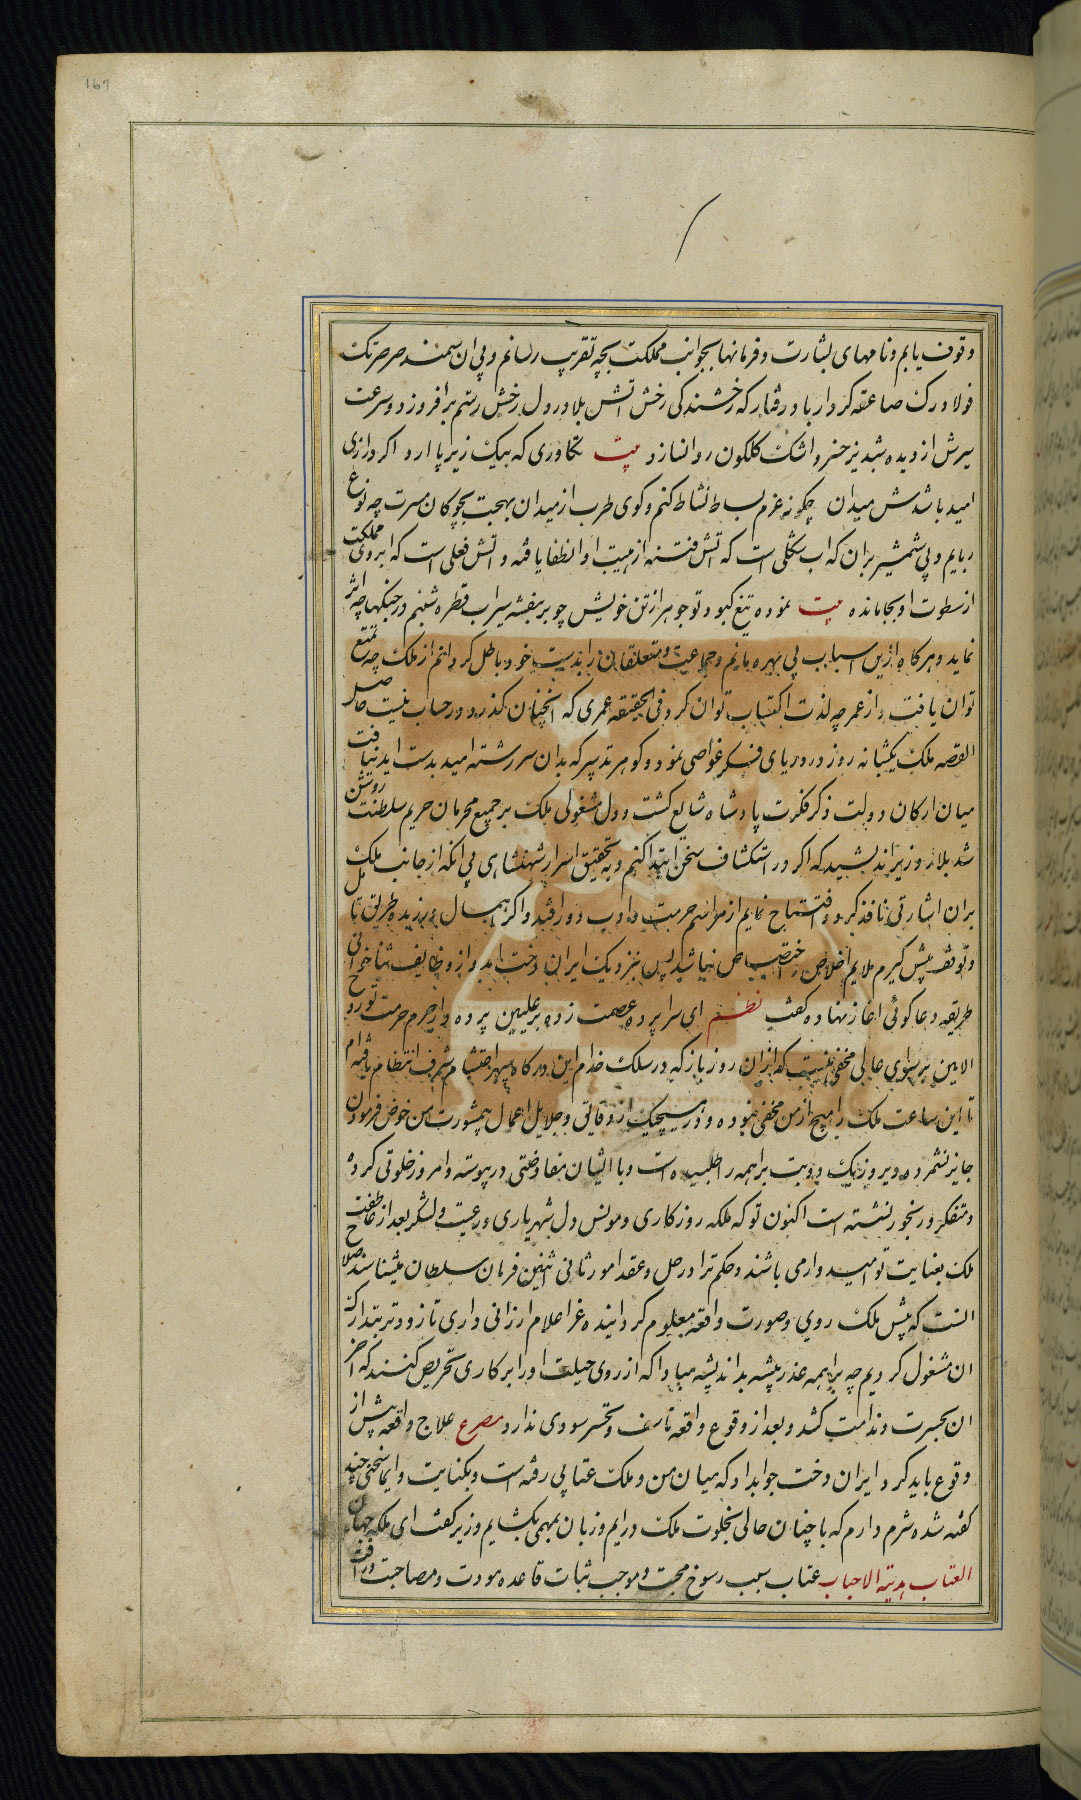 167
وقوف یابم و نامهای بشارت و فرمانها بجوانب مملکت بچه تقریب رسانم و بی ان سمند صرصرتک
فولادرک صاعقه کردار باد رفتار که رخشندکی رخش اتش بلا در دل رخش رستم برافروزد و سرعت
سیرش از دیده شبدیز خسرو اشک کلکون روانسازد بیت تکاوری که بیک زیر پا ارد اکر درازی
امید باشدش میدان چکونه عزم بساط نشاط کنم و کوی طرب از میدان بهجت بچوکان مسرت چه نوع
ربایم و بی شمشیر بران که اب شکلی است که اتش فتنه از هیبت او انطفا یافته و اتش فعلی است که ابروی مملکت
از سطوت او بجا مانده بیت نموده تیغ کبود تو جوهر از تن خویش چو بر بنفشه سیراب قطره شبنم در جنکها چه اثر
نماید و هرکاه ازین اسباب بی بهره مانم و جماعت و متعلقان را بدست خود باطل کردانم از ملک چه تمتع
توان یافت و از عمر چه لذت اکتساب توان کرد فی الحقیقه عمری که انچنان کذرد در حساب نیست حاصل
القصه ملک یکشبانه روز در دریای فکر غواصی نمود و کوهر تدبیر که بدان سررشته امید بدست اید نیافت
میان ارکان دولت ذکر فکرت پادشاه شایع کشت و دل مشغولی ملک بر جمیع محرمان حریم سلطنت روشن
شد بلار وزیر اندیشید که اکر در استکشاف سخن ابتدا کنم و به تحقیق اسرار شهنشاهی بی انکه از جانب ملک
بران اشارتی نافذ کردد افتتاح نمایم از مراسم حرمت و ادب دور افتد و اکر اهمال ورزیده طریق تامل
و توقف پیش کیرم ملایم اخلاص و اختصاص نباشد پس بنزدیک ایران دخت امد و از وظایف ثناخوانی
طریقه دعاکوئی اغاز نهاده کفت نظم ای سراپرده عصمت زده بر علیین پرده دار حرم حرمت تو روح
الامین بر رای عالی مخفی نیست که ازان روز باز که در سلک خدام این درکاه سپهر احتشام شرف انتظام یافته ام
تا این ساعت ملک را هیچ از من مخفی نبوده و در هیچیک از دقایق و جلایل اعمال بیمشورت من خوض فرمودن
جایز نشمرده و دیروز یک دو نوبت براهمه را طلبیده است و با ایشان مفاوضتی در پیوسته و امروز خلوتی کرده
و متفکر و رنجور نشسته است اکنون تو که ملکه روزکاری و مونس دل شهریاری و رعیت و لشکر بعد از عاطفت
ملک بعنایت تو امیدوار می باشند و حکم ترا در حل و عقد امور ثانی اثنین فرمان سلطان میشناسند صلاح
انست که پیش ملک روی و صورت واقعه معلوم کردانیده مرا اعلام ارزانی داری تا زودتر بتدارک
ان مشغول کردیم چه براهمه عذر پیشه بد اندیشه مبادا که از روی حیلت او را بر کاری تحریص کنند که اخر
ان بحسرت و ندامت کشد و بعد از وقوع واقعه تاسف و تحسر سودی ندارد مصرع علاج واقعه پیش از
وقوع باید کرد ایران دخت جواب داد که میان من و ملک عتابی رفته است و بکنایت و ایما سخنی چند
کفته شده شرم دارم که با چنان حالی بخلوت ملک درایم و زبان بمهمی بکشایم وزیر کفت ای ملکه جهان
العتاب هدیة الاحباب عتاب سبب رسوخ محبت و موجب ثبات قاعده مودت و مصاحبت